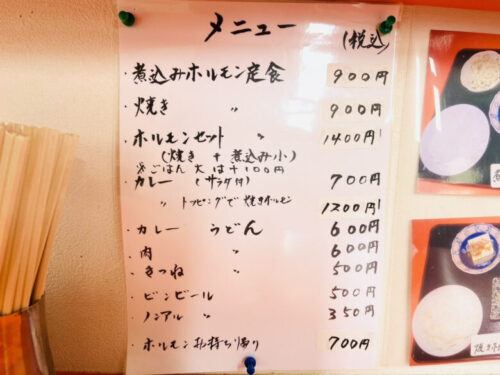 メニュー
(税込)
・煮込みホルモン定食 900円
・焼き 〃 900円
・ホルモンセット 〃 1400円
(焼き + 煮込み小)
※ごはん大は+100円
・カレー (サラダ付) 700円
・〃 トッピングで焼きホルモン 1200円
・カレーうどん 600円
・肉 〃 600円
・きつね 〃 500円
・ビンビール 500円
・ノンアル 〃 350円
・ホルモンお持ち帰り 700円